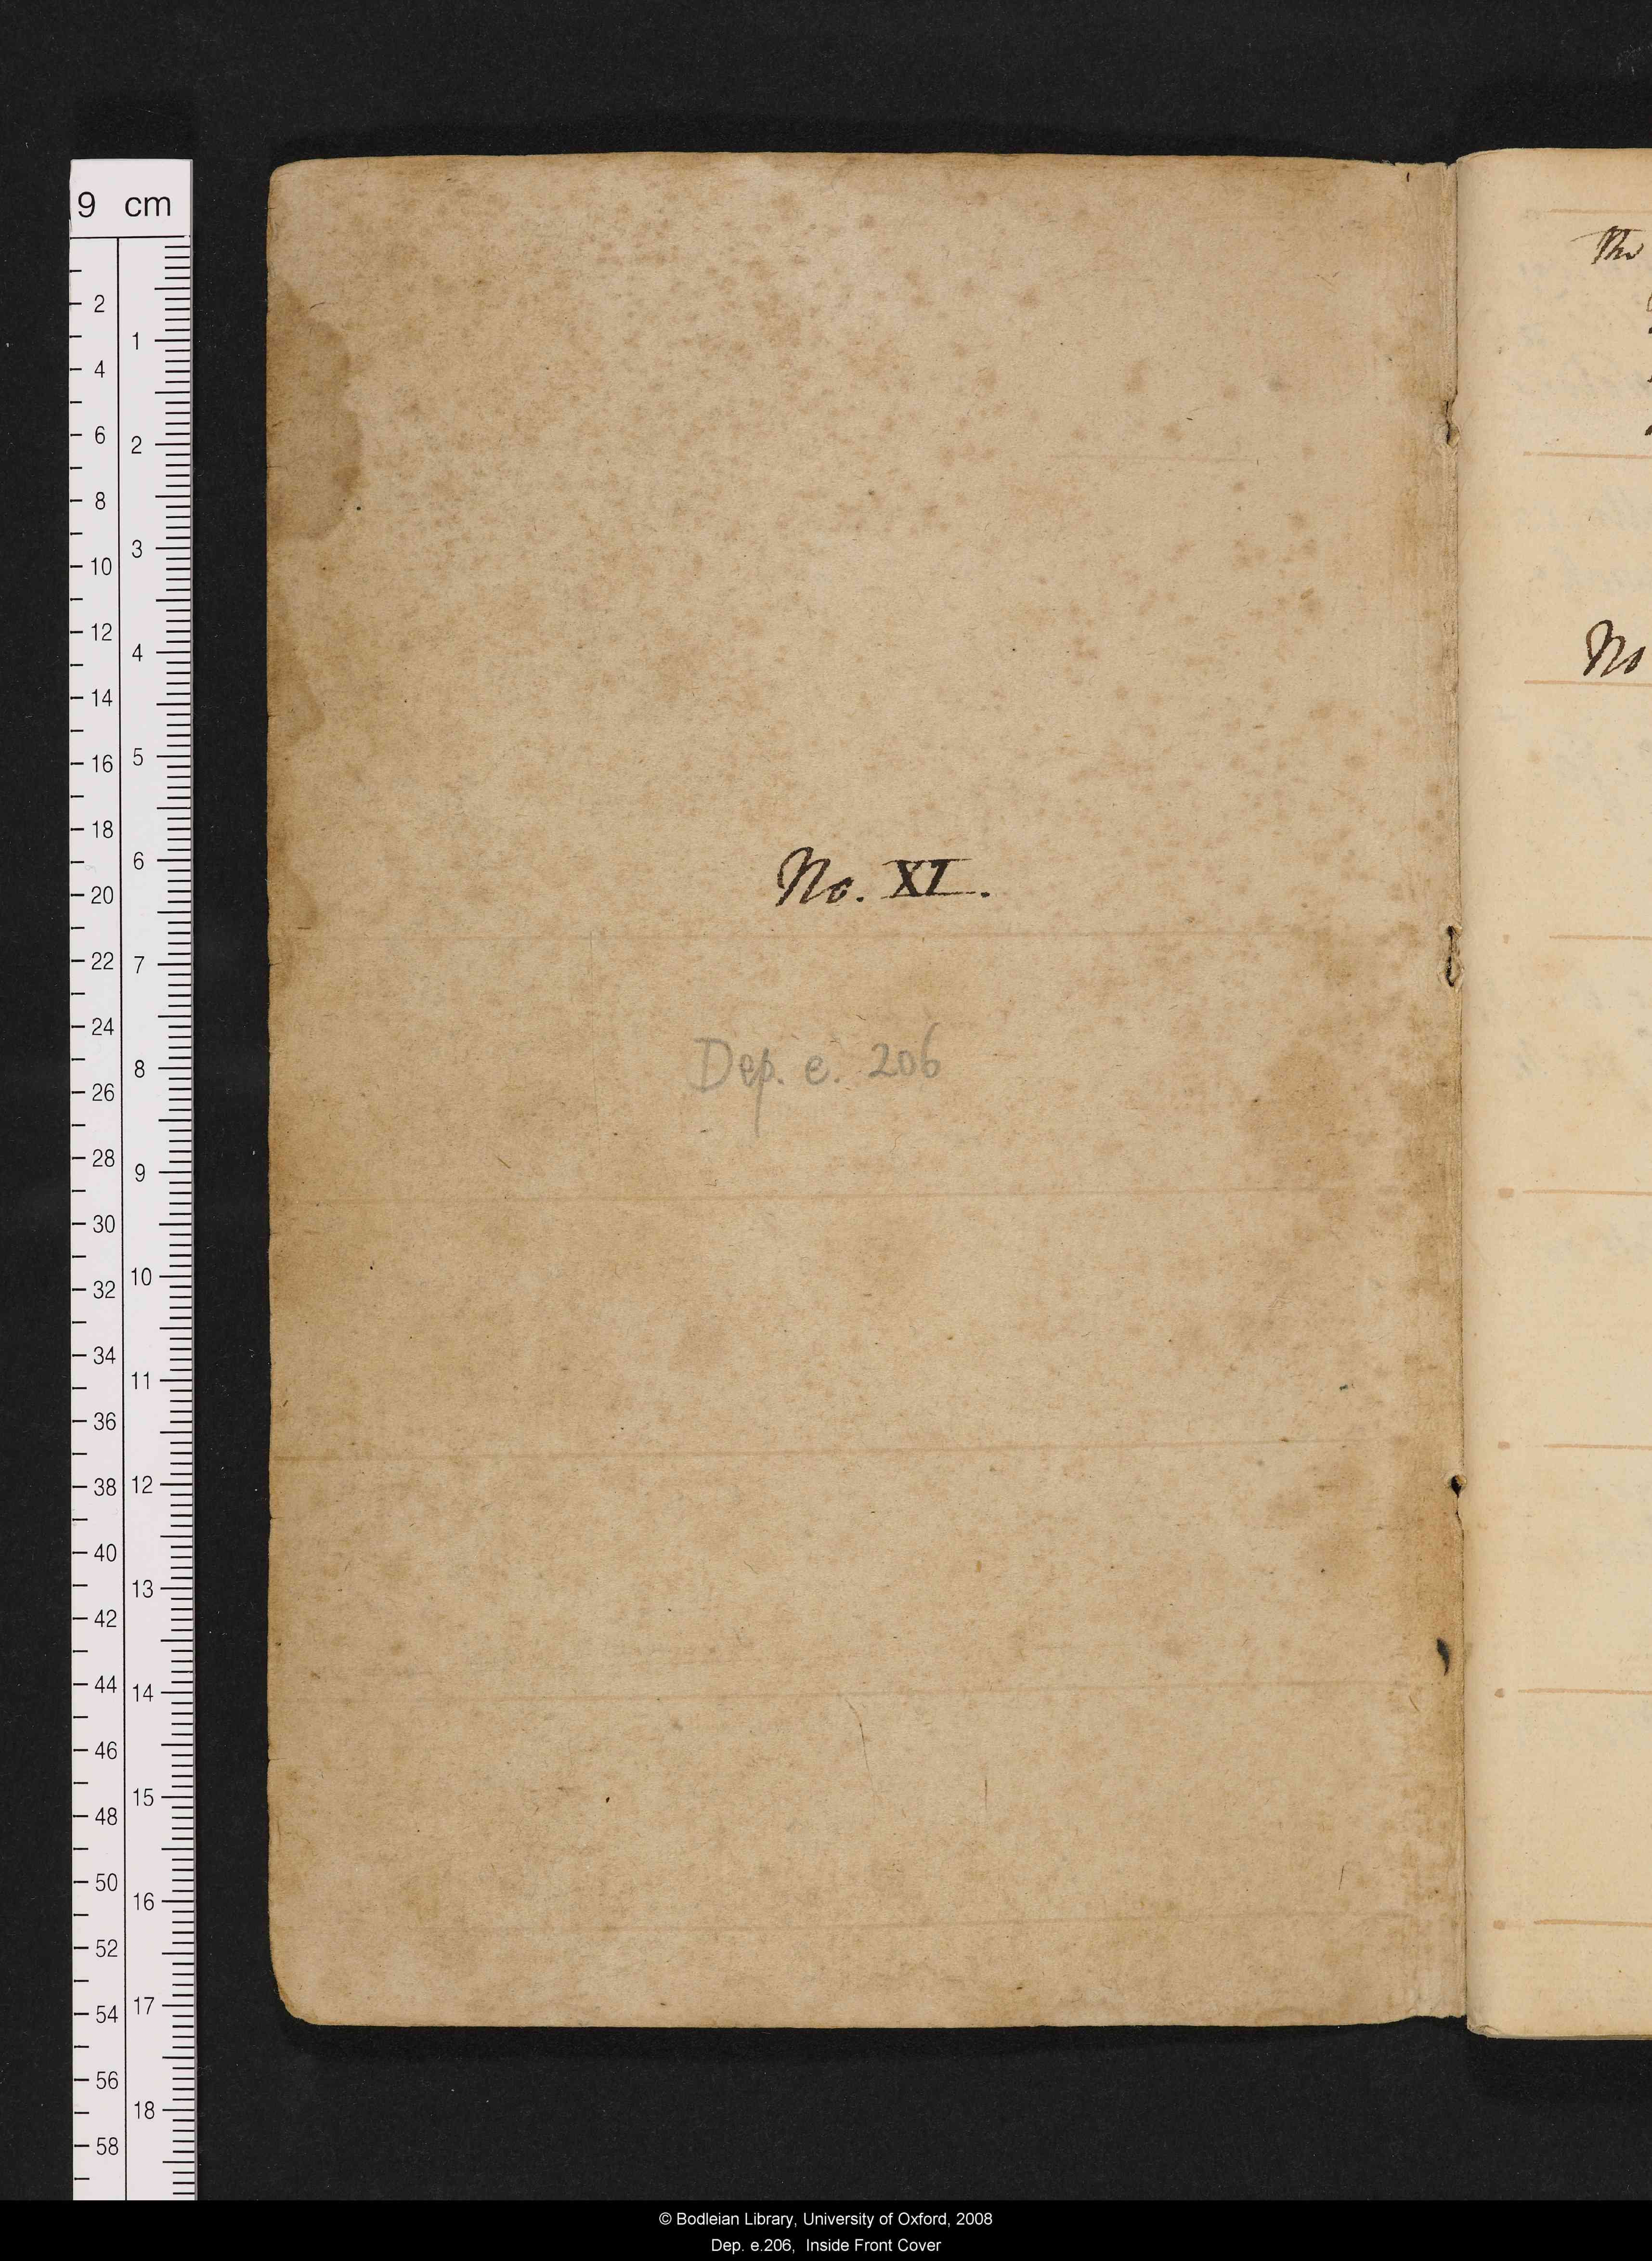 9 cm
2
4
6
8
10
12
14
16
18
20
22
24
26
28
30
32
34
36
38
40
42
44
46
48
50
52
54
56
58
1
2
3
4
5
6
7
8
9
10
11
12
13
14
15
16
17
18
No. XI.
Dep. e. 206
No
© Bodleian Library, University of Oxford, 2008
Dep. e.206, Inside Front Cover